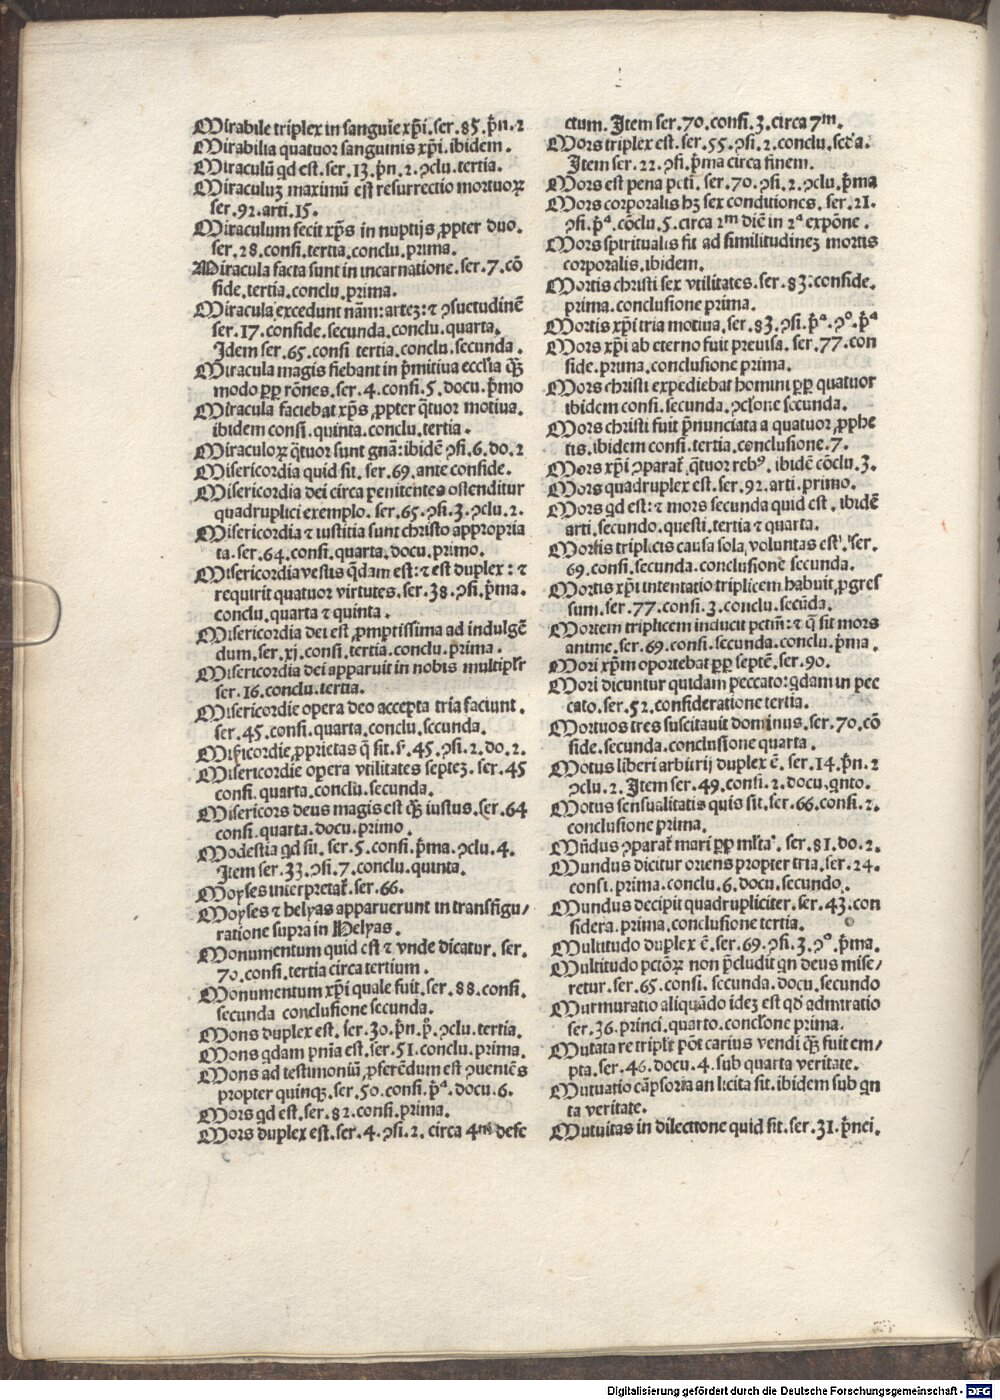 Mirabile triplex in sanguīe xp̄i. ser. 85. p̄n. 2
Mirabilia quatuor sanguinis xp̄i. ibidem.
Miraculū qd est. ser. 13. p̄n. 2. ꝯclu. tertia.
Miraculuꝫ maximū est resurrectio mortuoꝝ
ser. 92. arti. 15.
Miraculum fecit xp̄s in nuptijs ꝓpter duo.
ser. 28. consi. tertia. conclu. prima.
Miracula facta sunt in incarnatione. ser. 7. cō
side. tertia. conclu. prima.
Miracula excedunt nām: arteꝫ: ⁊ ꝯsuetudinē
ser. 17. conside. secunda. conclu. quarta.
Idem ser. 65. consi tertia. conclu. secunda.
Miracula magis fiebant in p̄mitiua eccl'ia qꝫ̄
modo ꝓp̄ rōnes. ser. 4. consi. 5. docu. p̄mo
Miracula faciebat xp̄s ꝓpter q̄tuor motiua.
ibidem consi. quinta. conclu. tertia.
Miraculoꝝ q̄tuor sunt gn̄a: ibidē ꝯsi. 6. do. 2
Misericordia quid sit. ser. 69. ante conside.
Misericordia dei circa penitentes ostenditur
quadruplici exemplo. ser. 65. ꝯsi. 3. ꝯclu. 2.
Misericordia ⁊ iustitia sunt christo appropria
ta. ser. 64. consi. quarta. docu. primo.
Misericordia vestis q̄dam est: ⁊ est duplex: ⁊
requirit quatuor virtutes. ser. 38. ꝯsi. p̄ma.
conclu. quarta ⁊ quinta.
Misericordia dei est ꝓmptissima ad indulgē
dum. ser. xj. consi. tertia. conclu. prima.
Misericordia dei apparuit in nobis multipl'r
ser. 16. conclu. tertia.
Misericordie opera deo accepta tria faciunt.
ser. 45. consi. quarta. conclu. secunda.
Mi̅sericordie ꝓprietas q̄ sit. s'. 45. ꝯsi. 2. do. 2.
Misericordie opera vtilitates septeꝫ. ser. 45
consi. quarta. conclu. secunda.
Misericors deus magis est qꝫ̄ iustus. ser. 64
consi. quarta. docu. primo.
Modestia qd sit. ser. 5. consi. p̄ma. ꝯclu. 4.
Item ser. 33. ꝯsi. 7. conclu. quinta.
Moyses interpretat'. ser. 66.
Moyses ⁊ helyas apparuerunt in transfigu/
ratione supra in Helyas.
Monumentum quid est ⁊ vnde dicatur. ser.
70. consi. tertia circa tertium.
Monumentum xp̄i quale fuit. ser. 88. consi.
secunda conclusione secunda.
Mons duplex est. ser. 30. p̄n. p̊. ꝯclu. tertia.
Mons qdam pn̄ia est. ser. 51. conclu. prima.
Mons ad testimoniū ꝓferēdum est ꝯueniēs
propter quinqꝫ. ser. 50. consi. p̄ᵃ. docu. 6.
Mors qd est. ser. 82. consi. prima.
Mors duplex est. ser. 4. ꝯsi. 2. circa 4ᵐ defe
ctum. Item ser. 70. consi. 3. circa 7ᵐ.
Mors triplex est. ser. 55. ꝯsi. 2. conclu. sec'a.
Item ser. 22. ꝯsi. p̄ma circa finem.
Mors est pena pc̄ti. ser. 70. ꝯsi. 2. ꝯclu. p̄ma
Mors corporalis hꝫ sex conditiones. ser. 21.
ꝯsi. p̄ᵃ. cōclu. 5. circa 2ᵐ diē in 2ᵃ expōne.
Mors spiritualis fit ad similitudineꝫ mortis
corporalis. ibidem.
Mortis christi sex vtilitates. ser. 83: conside.
prima. conclusione prima.
Mortis xp̄i tria motiua. ser. 83. ꝯsi. p̄ᵃ. ꝯᵒ. p̄ᵃ
Mors xp̄i ab eterno fuit preuisa. ser. 77. con
side. prima. conclusione prima.
Mors christi expediebat homini ꝓp̄ quatuor
ibidem consi. secunda. ꝯcl'one secunda.
Mors christi fuit p̄nunciata a quatuor ꝓphe
tis. ibidem consi. tertia. conclusione. 7.
Mors xp̄i ꝯparat' q̄tuor rebꝰ. ibidē cōclu. 3.
Mors quadruplex est. ser. 92. arti. primo.
Mors qd est: ⁊ mors secunda quid est. ibidē
arti. secundo. questi. tertia ⁊ quarta.
Mortis triplicis causa sola voluntas est. ser.
69. consi. secunda. conclusione secunda.
Mortis xp̄i intentatio triplicem habuit ꝓgres
sum. ser. 77. consi. 3. conclu. secūda.
Mortem triplicem inducit pctm̄: ⁊ q̄ sit mors
anime. ser. 69. consi. secunda. conclu. p̄ma.
Mori xp̄m oportebat ꝓp̄ septē. ser. 90.
Mori dicuntur quidam peccato: qdam in pec
cato. ser. 52. consideratione tertia.
Mortuos tres suscitauit dominus. ser. 70. cō
side. secunda. conclusione quarta.
Motus liberi arbitrij duplex ē. ser. 14. p̄n. 2
ꝯclu. 2. Item ser. 49. consi. 2. docu. qnto.
Motus sensualitatis quis sit. ser. 66. consi. 2.
conclusione prima.
Mūdus ꝯparat' mari ꝓp̄ ml'ta. ser. 81. do. 2.
Mundus dicitur oriens propter tria. ser. 24.
consi. prima. conclu. 6. docu. secundo.
Mundus decipit quadrupliciter. ser. 43. con
sidera. prima. conclusione tertia.
Multitudo duplex ē. ser. 69. ꝯsi. 3. ꝯᵒ. p̄ma.
Multitudo pctōꝝ non p̄cludit qn deus mise/
retur. ser. 65. consi. secunda. docu. secundo
Murmuratio aliquādo ideꝫ est qd̄ admiratio
ser. 36. princi. quarto. concl'one prima.
Mutata re tripl'r pōt carius vendi qꝫ̄ fuit em/
pta. ser. 46. docu. 4. sub quarta veritate.
Mutuatio cāpsoria an licita sit. ibidem sub qn
ta veritate.
Mutuitas in dilectione quid sit. ser. 31. p̄nci.
Digitalisierung gefördert durch die Deutsche Forschungsgemeinschaft - DFG